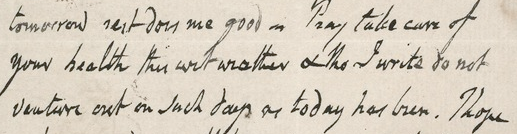 tomorrow rest does me good - Pray take care of
your health this wet weather & tho I write do not
venture out on such days as today has been. I hope